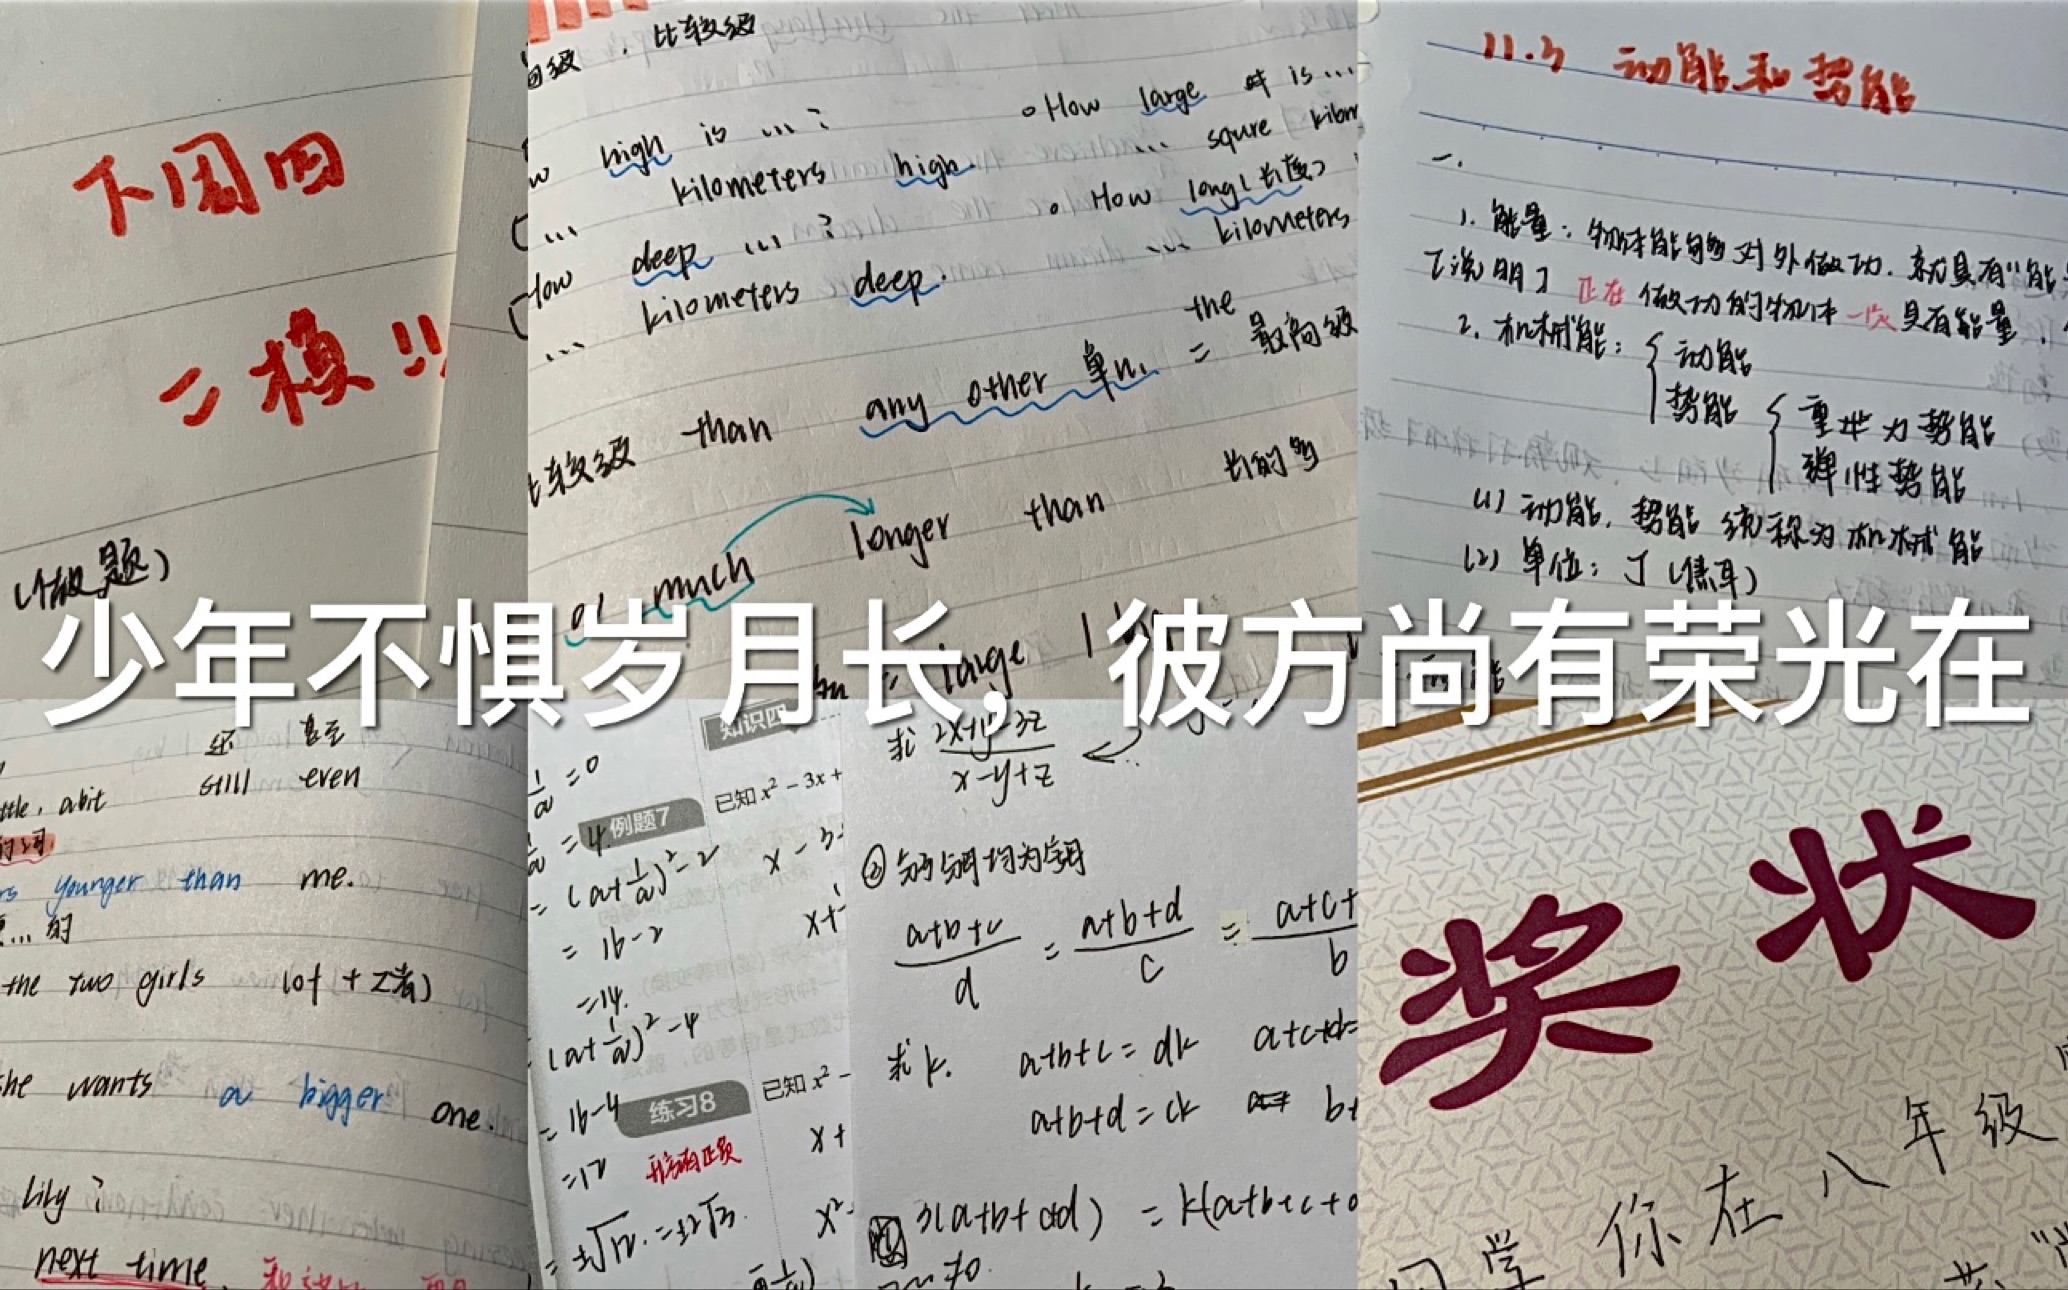 下周四
二模!!
(做题)
比较级
high is ...?
... kilometers high.
How deep ...?
... kilometers deep.
How large is ...
... squre
How long(长度)
... kilometers
比较级 than any other 单n. = the 最高级
much longer than 长的多
large
11.3 动能和势能
一.
1. 能量：物体能够对外做功，就具有"能
[说明] 正在做功的物体一定具有能量.
2. 机械能：{动能
势能 {重力势能
弹性势能
(1) 动能、势能统称为机械能
(2) 单位：J (焦耳)
少年不惧岁月长，彼方尚有荣光在
还 甚至
a bit still even
younger than me.
... 的
the two girls (of + 2者)
she wants a bigger one.
Lily?
next time
知识四
已知 x² - 3x +
例题7
= 4.
= (a+1/a)² - 2
= 16-2
=14.
(a+1/a)² - 4
= 16-4
=12
= ±√12 = ±2√3.
练习8
已知 x² -
求 (2x+y-3z)/(x-y+z)
② 分子分母均为字母
(a+b+c)/d = (a+b+d)/c = (a+c+)/b
求k. a+b+c = dk a+c+d=
a+b+d = ck
3(a+b+c+d) = k(a+b+c+
奖状
同学 你在八年级